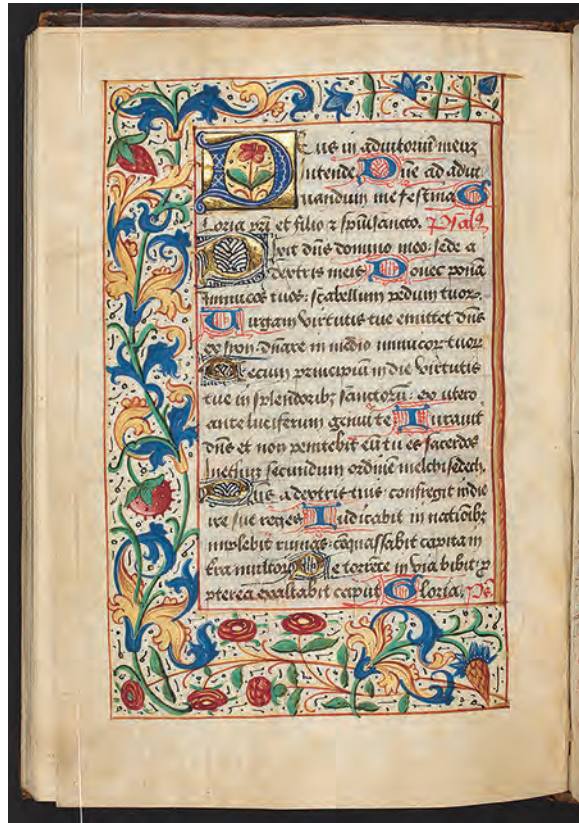 Deus in adiutoriū meuz
intende. Dñe ad adiu
uandum me festina. G
Loria pr̄i et filio ⁊ spūisancto. Psalꝰ
Dixit dn̄s domino meo: sede a
dextris meis. Donec ponā
Inimicos tuos: scabellum pedum tuorꝝ.
Uirgam virtutis tue emittet dn̄s
ex syon: dn̄are in medio inimicorꝝ tuorꝝ
Tecum principiū in die virtutis
tue in splendoribꝫ sanctorū: ex utero
ante luciferum genui te. Iurauit
dn̄s et non penitebit eū tu es sacerdos
Inethnꝫ secundum ordinē melchisedech.
Dn̄s a dextris tuis: confregit in die
ire sue reges. Iudicabit in nationibꝫ
implebit ruinas: cōquassabit capita in
t̄ra multorꝝ. De torrēte in via bibit: ꝓ
pterea exaltabit caput. Gloria. Ps.